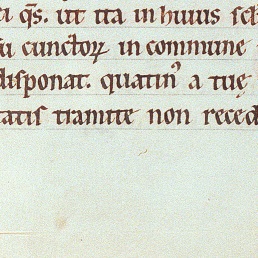 qs. ut ita in huius
cunctoꝝ in commune
disponat. quatinꝰ a tuę
tatis tramite non reced